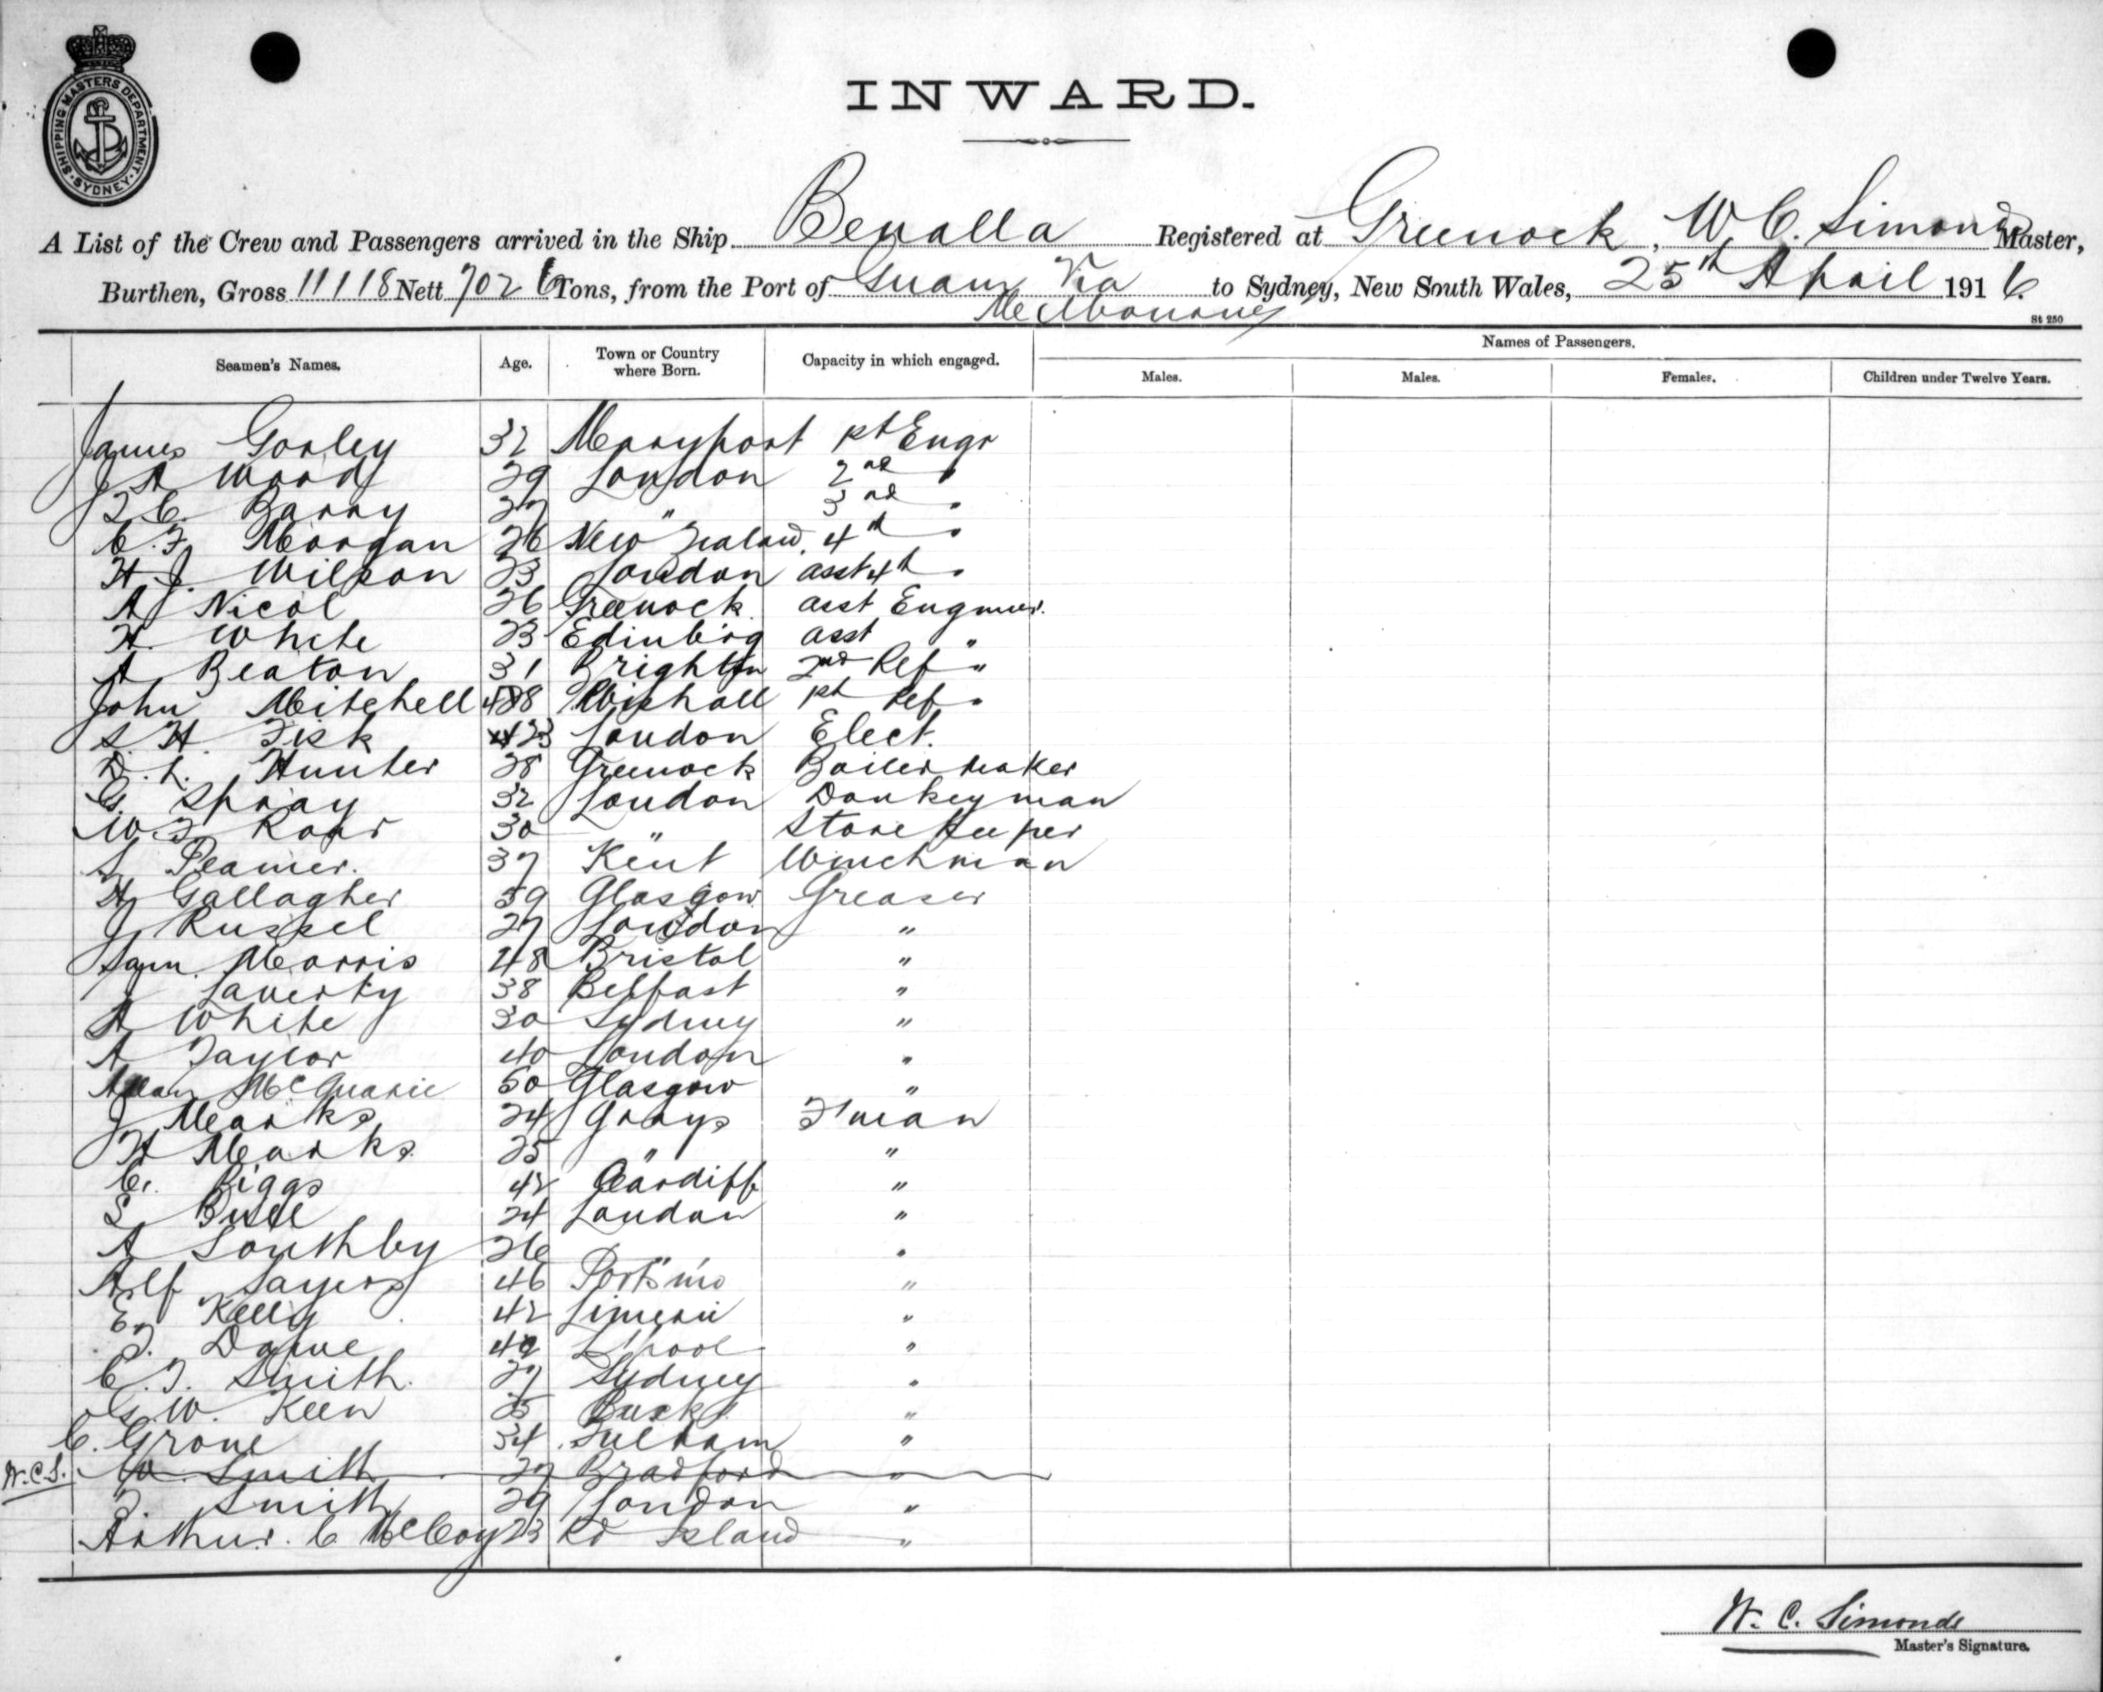 SHIPPING MASTERS DEPARTMENT. SYDNEY
INWARD.
A List of the Crew and Passengers arrived in the Ship Benalla Registered at Greenock, W C. Simonds Master,
Burthen, Gross 11118 Nett 7026 Tons, from the Port of Via Melbourne to Sydney, New South Wales, 25th April 1916.
St 250
Seamen's Names. Age. Town or Country where Born. Capacity in which engaged. Names of Passengers.
Males. Males. Females. Children under Twelve Years.
James Gorley 32 Maryport 1st Engr
J A Wood 29 London 2nd "
J C. Barry 27 " 3rd "
C. F Morgan 26 New Zealand. 4th "
H J. Wilson 23 London asst 4th "
A Nicol 26 Greenock. asst Engineer.
H. White 23 Edinburg asst "
A Beaton 31 Brighton 2nd Ref "
John Mitchell 48 Wishall 1st Ref "
S. H. Fisk 23 London Elect.
D. L. Hunter 28 Greenock Boilermaker
G. Spray 32 London Donkeyman
W. F Roar 30 " Storekeeper
S Peamer. 37 Kent Winchman
H Gallagher 39 Glasgow Greaser
J Russel 27 London "
Sam. Morris 48 Bristol "
J Laverty 38 Belfast "
A White 30 Sydney "
A Taylor 40 London "
Allan McQuarie 50 Glasgow "
J Marks 24 Grays F'man
H Marks 25 " "
C. Biggs 42 Cardiff "
S Bull 24 London "
A Southby 26 " "
Alf Sayers 46 Portsmo "
E. Kelly 42 Limeric "
J. Dowe 42 L'pool "
C. F. Smith. 27 Sydney "
G. W. Keen 25 Bucks "
C. Grove 34 Fulham "
W.C.S. W. Smith 27 Bradford "
F. Smith 29 London "
Arthur. C McCoy 23 Rd Island "
W. C. Simonds
Master's Signature.